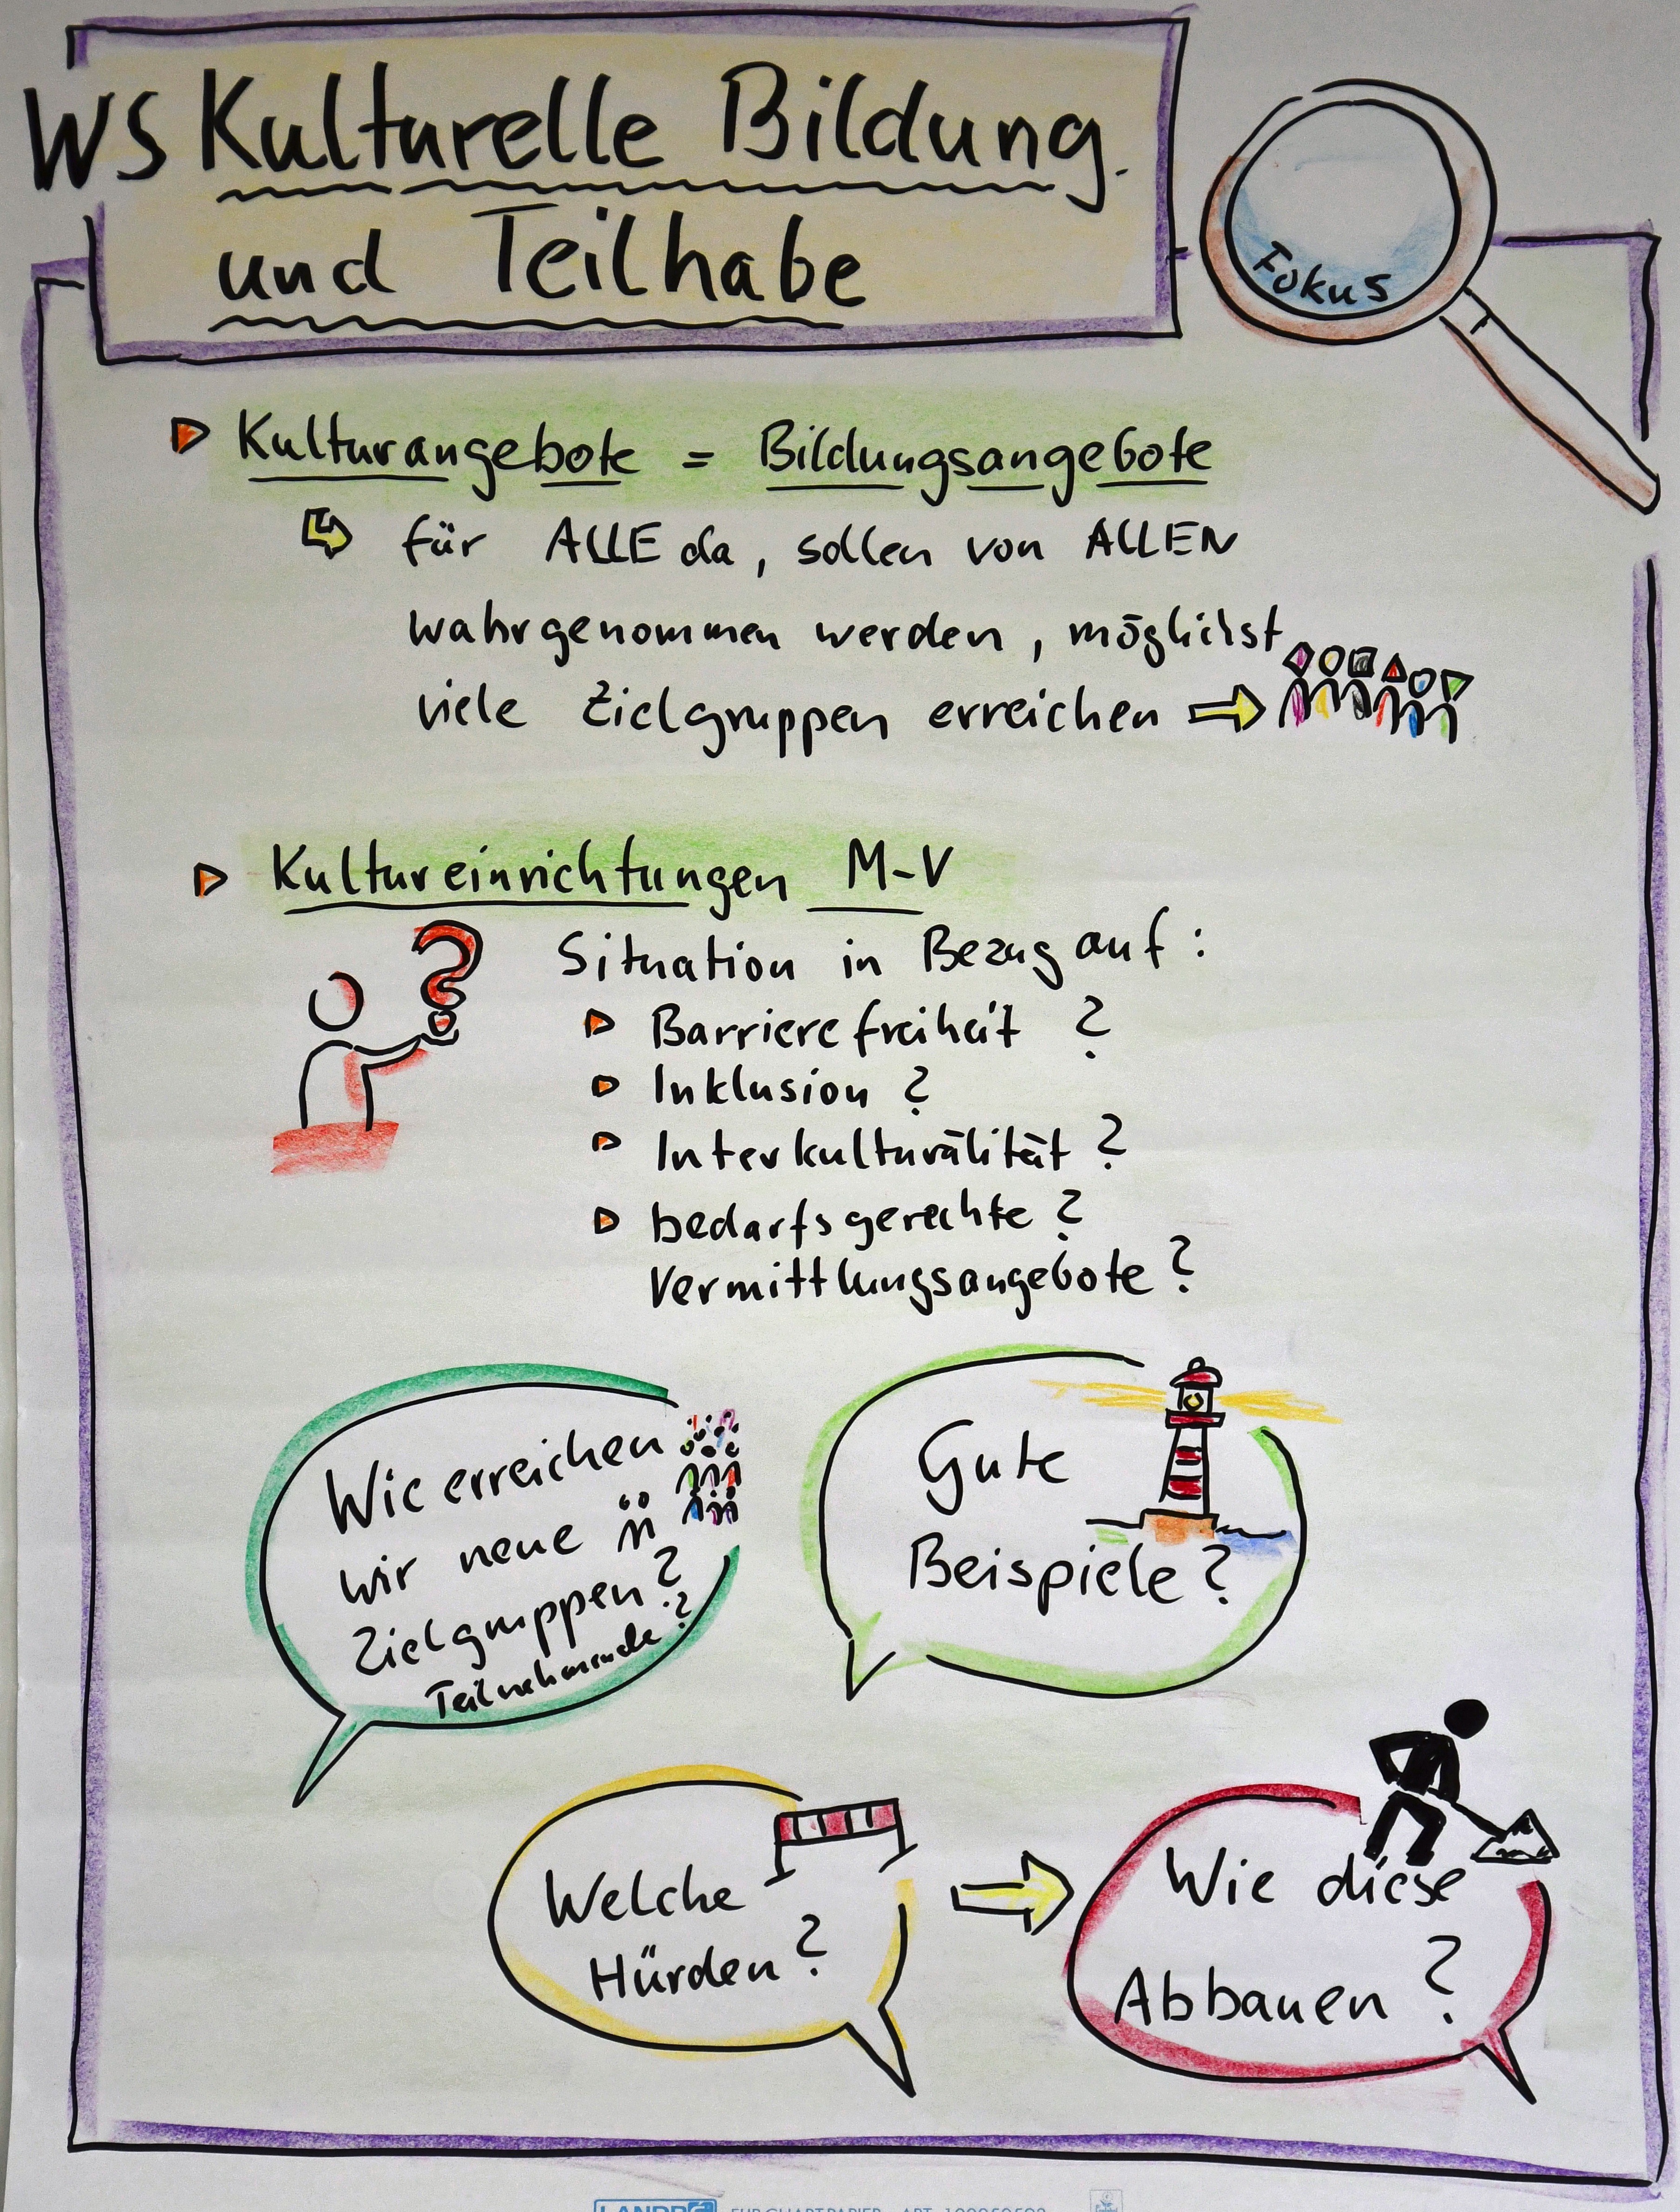 WS Kulturelle Bildung
und Teilhabe
Fokus
Kulturangebote = Bildungsangebote
für ALLE da, sollen von ALLEN
wahrgenommen werden, möglichst
viele Zielgruppen erreichen
Kultureinrichtungen M-V
Situation in Bezug auf:
Barrierefreiheit ?
Inklusion ?
Interkulturälität ?
bedarfsgerechte ?
Vermittlungsangebote ?
Wie erreichen
wir neue
Zielgruppen?
Teilnehmende?
Gute
Beispiele?
Welche
Hürden?
Wie diese
Abbauen ?